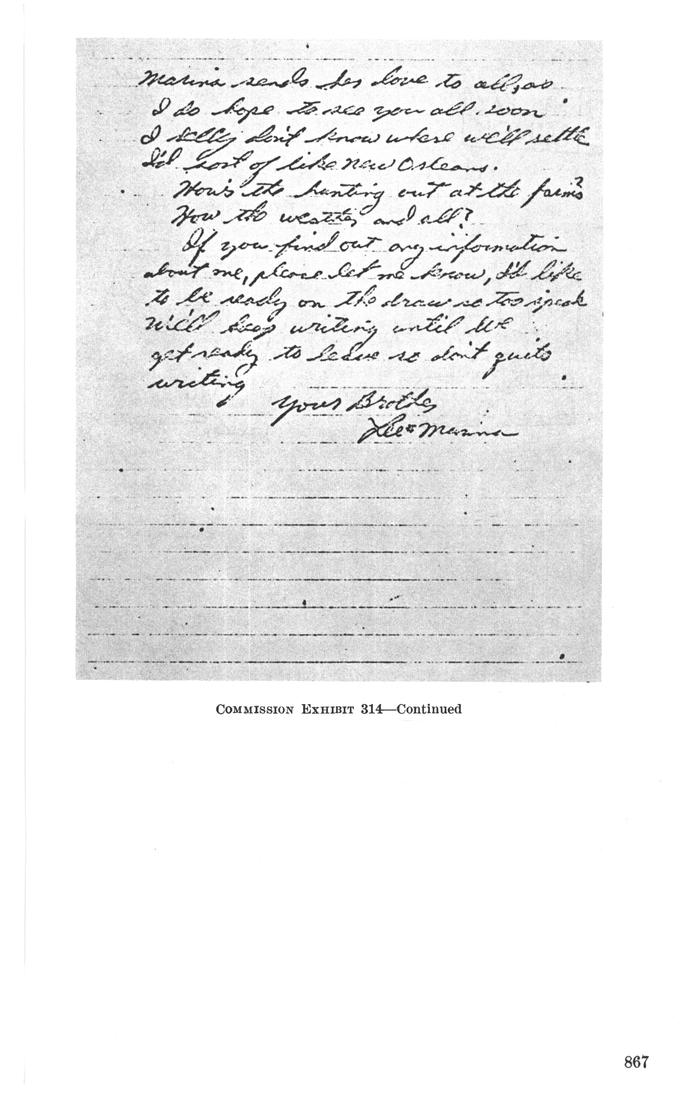 Marina sends her love to all, as
I do hope to see you all soon.
I really don't know where we'll settle
I'd sort of like New Orleans.
How's the hunting out at the farms?
How the weather and all?
If you find out any information
about me, please let me know, I'd like
to be ready on the draw so too speak
We'll keep writing until we
get ready to leave so don't quite
writing
Your Brother
Lee & Marina
COMMISSION EXHIBIT 314—Continued
867